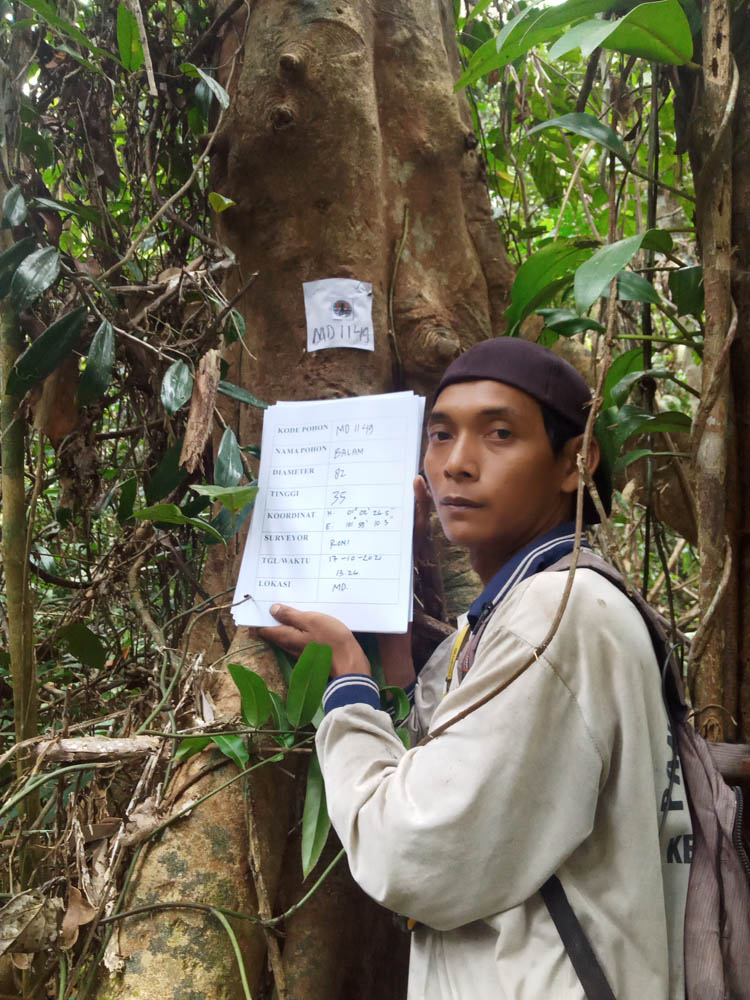 MD 1149
KODE POHON MD 1149
NAMA POHON BALAM
DIAMETER 82
TINGGI 35
KOORDINAT N: 01° 02' 26.5"
E: 101° 59' 10.3"
SURVEYOR RONI
TGL/WAKTU 17-10-2021
13.26
LOKASI MD.
KE